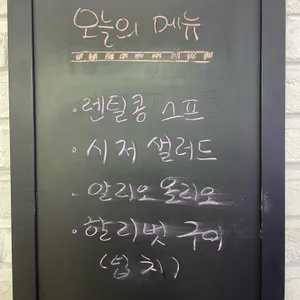 오늘의 메뉴
· 렌틸콩 스프
· 시저 샐러드
· 알리오 올리오
· 할리벗 구이
(넙치)